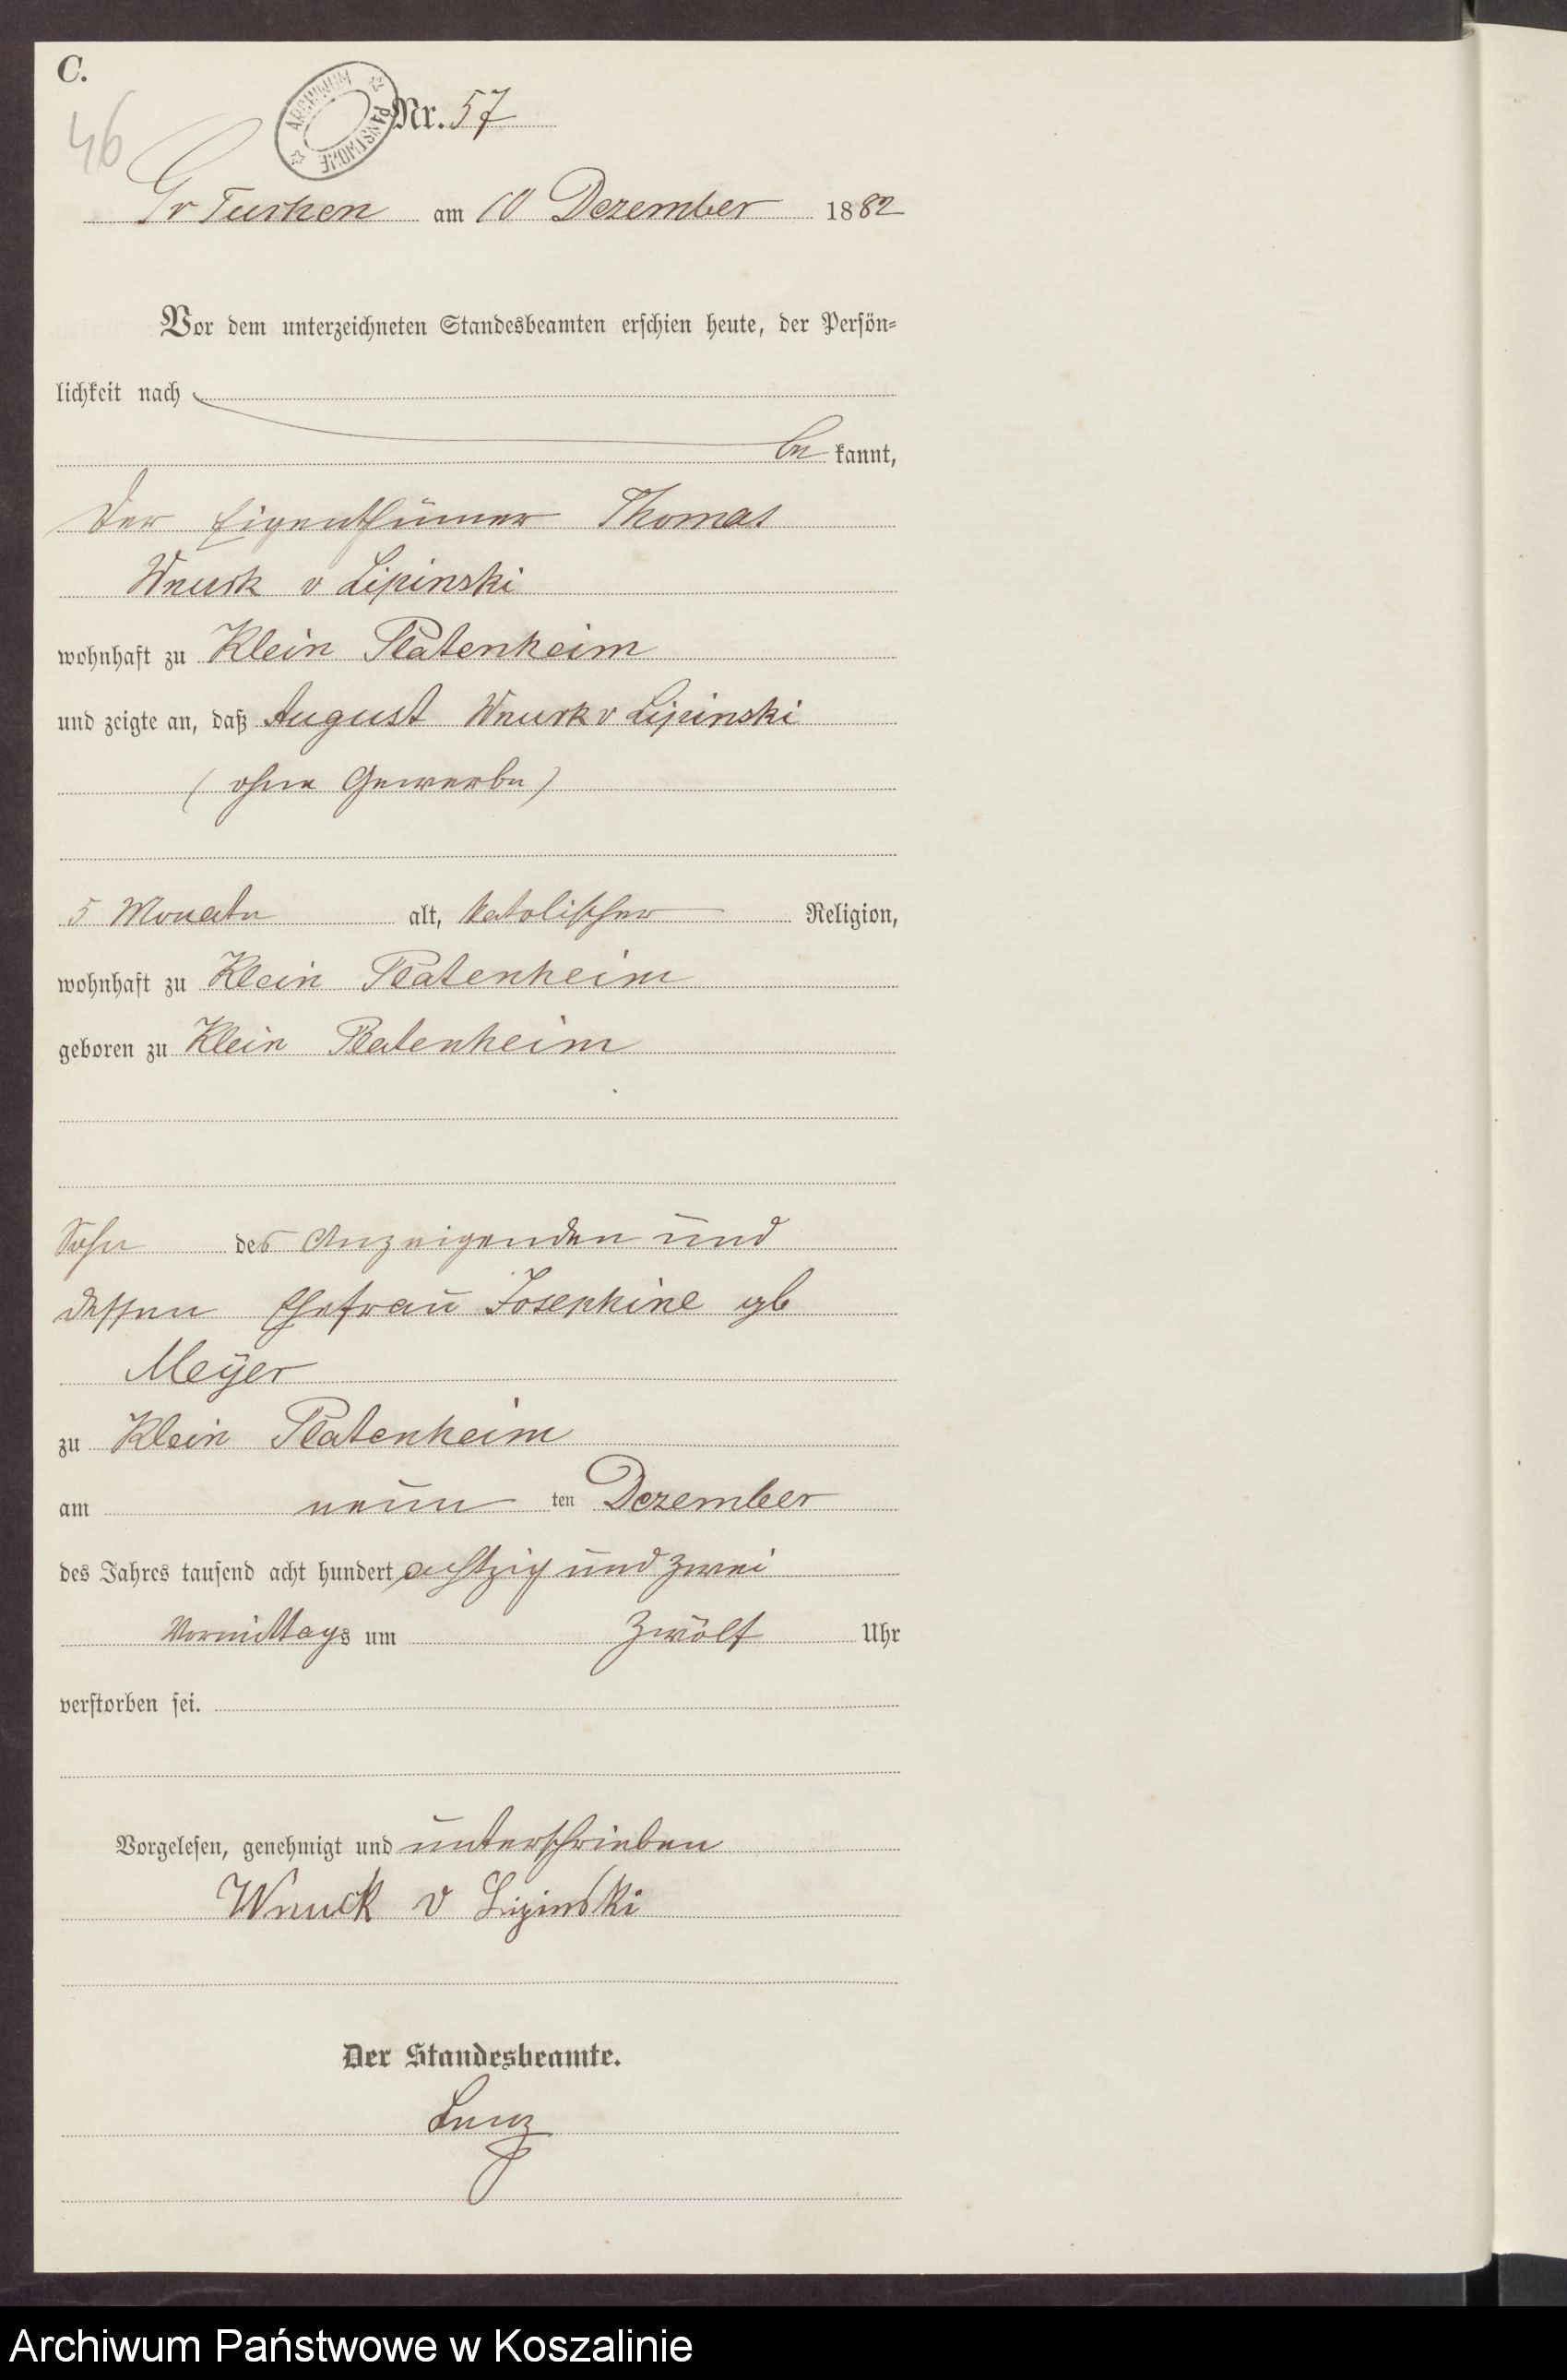 C.
46
ARCHIWUM PAŃSTWOWE
Nr. 57
Gr Tuchen am 10 Dezember 1882
Vor dem unterzeichneten Standesbeamten erschien heute, der Persön-
lichkeit nach
be kannt,
der Eigenthümer Thomas
Wnuck v Lipinski
wohnhaft zu Klein Platenheim
und zeigte an, daß August Wnuck v Lipinski
(ohne Gewerbe)
5 Monate alt, katolischer Religion,
wohnhaft zu Klein Platenheim
geboren zu Klein Platenheim
Sohn des Anzeigenden und
dessen Ehefrau Josephine gb
Meÿer
zu Klein Platenheim
am neun ten Dezember
des Jahres tausend acht hundert achtzig und zwei
Vormittags um Zwölf Uhr
verstorben sei.
Vorgelesen, genehmigt und unterschrieben
Wnuck v Lipinski
Der Standesbeamte.
Lenz
Archiwum Państwowe w Koszalinie